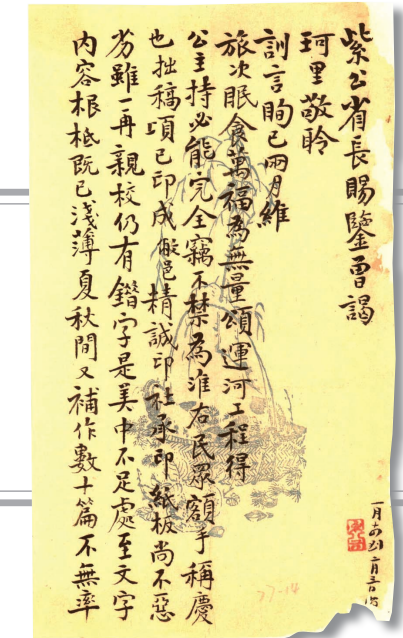 紫公省長賜鑒曾謁
珂里敬聆
訓言眴已兩月維
旅次眠食萬福為無量頌運河工程得
公主持必能完全竊不禁為淮右民眾額手稱慶
也拙稿頃已印成敝邑精誠印社承印紙板尚不惡
劣雖一再親校仍有錯字是美中不足處至文字
內容根柢既已淺薄夏秋間又補作數十篇不無率
77-14